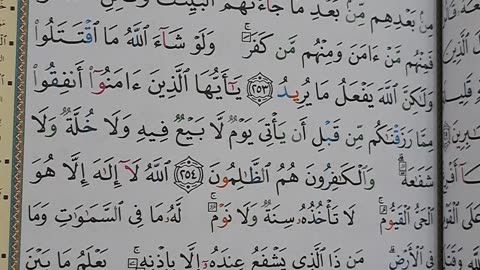 مِنۢ بَعْدِهِم مِّنۢ بَعْدِ مَا جَآءَتْهُمُ ٱلْبَيِّنَٰتُ وَلَٰكِنِ
فَمِنْهُم مَّنْ ءَامَنَ وَمِنْهُم مَّن كَفَرَ ۚ وَلَوْ شَآءَ ٱللَّهُ مَا ٱقْتَتَلُوا۟
وَلَٰكِنَّ ٱللَّهَ يَفْعَلُ مَا يُرِيدُ ٢٥٣ يَٰٓأَيُّهَا ٱلَّذِينَ ءَامَنُوٓا۟ أَنفِقُوا۟
مِمَّا رَزَقْنَٰكُم مِّن قَبْلِ أَن يَأْتِىَ يَوْمٌ لَّا بَيْعٌ فِيهِ وَلَا خُلَّةٌ وَلَا
شَفَٰعَةٌ ۗ وَٱلْكَٰفِرُونَ هُمُ ٱلظَّٰلِمُونَ ٢٥٤ ٱللَّهُ لَآ إِلَٰهَ إِلَّا هُوَ
ٱلْحَىُّ ٱلْقَيُّومُ ۚ لَا تَأْخُذُهُۥ سِنَةٌ وَلَا نَوْمٌ ۚ لَّهُۥ مَا فِى ٱلسَّمَٰوَٰتِ وَمَا
فِى ٱلْأَرْضِ ۗ مَن ذَا ٱلَّذِى يَشْفَعُ عِندَهُۥٓ إِلَّا بِإِذْنِهِۦ ۚ يَعْلَمُ مَا بَيْنَ